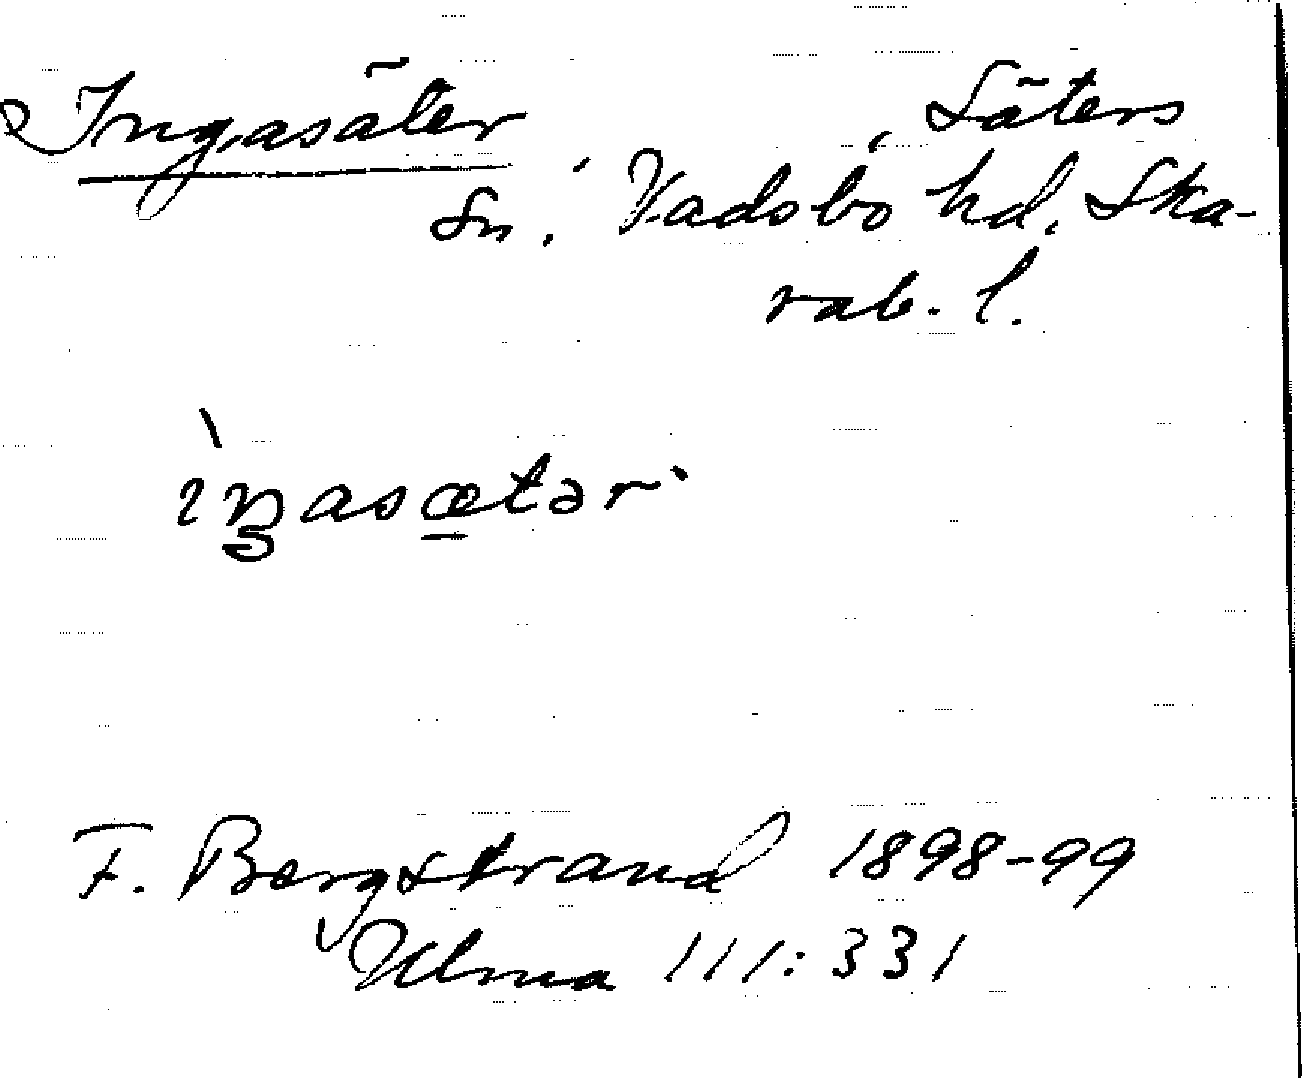 Ingasäter, Säters
sn, Vadsbo hd. Ska-
rab. l.
ìŋasætər
F. Bergstrand 1898-99
Ulma 111:331